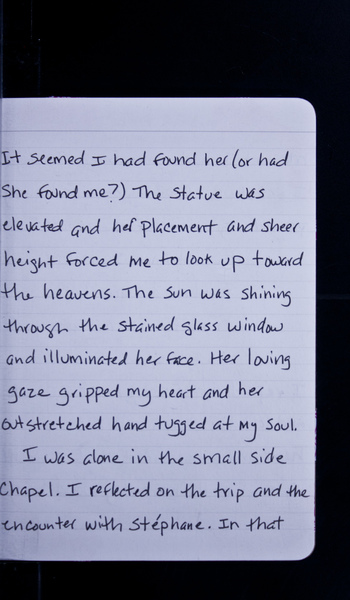 It seemed I had found her (or had
She found me?) The statue was
elevated and her placement and sheer
height forced me to look up toward
the heavens. The sun was shining
through the stained glass window
and illuminated her face. Her loving
gaze gripped my heart and her
outstretched hand tugged at my soul.
I was alone in the small side
Chapel. I reflected on the trip and the
encounter with Stéphane. In that